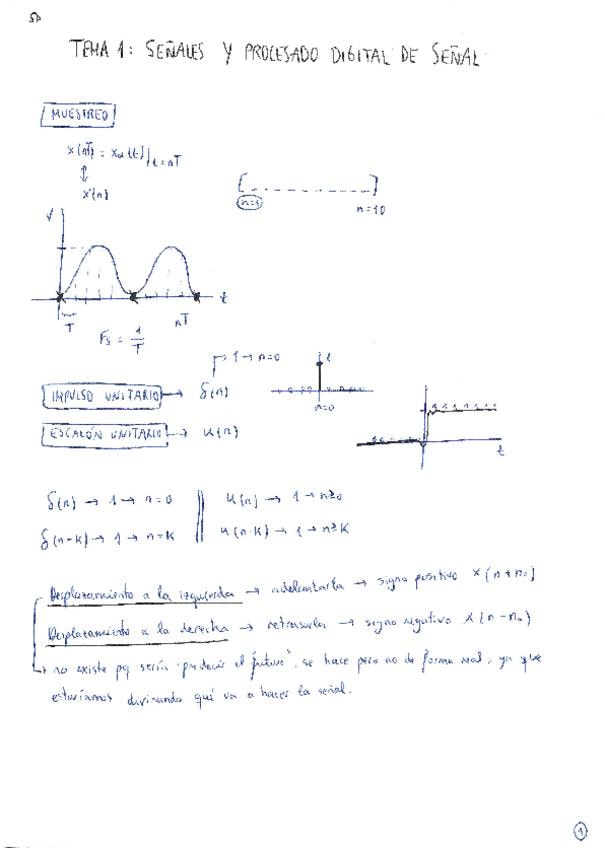 SP
TEMA 1: SEÑALES Y PROCESADO DIGITAL DE SEÑAL
MUESTREO
x(nT) = xa(t)|t=nT
↕
x(n)
n=1
n=10
t
T
nT
Fs = 1/T
1 → n=0
IMPULSO UNITARIO → δ(n)
n=0
ESCALÓN UNITARIO → u(n)
t
δ(n) → 1 → n=0 || u(n) → 1 → n≥0
δ(n-k) → 1 → n=k || u(n-k) → 1 → n≥k
Desplazamiento a la izquierda → adelantarla → signo positivo x(n+n₀)
Desplazamiento a la derecha → retrasarla → signo negativo x(n-n₀)
→ no existe pq sería "predecir el futuro", se hace pero no de forma real, ya que
estaríamos divinando qué va a hacer la señal.
1